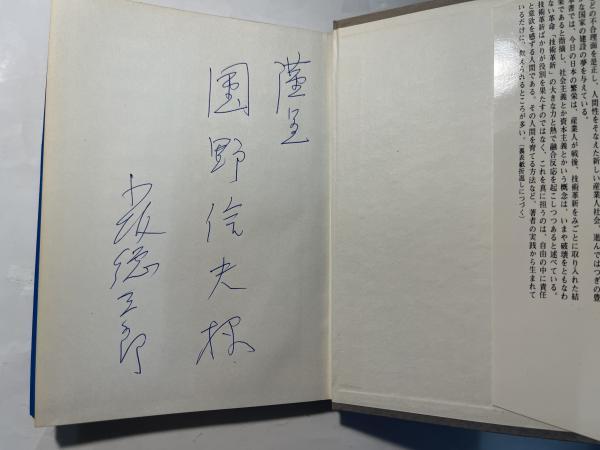 どの不合理面を是正し、人間性をそなえた新しい産業人社会、進んではつぎの豊
かな国家の建設の夢を与えている。
本書では、今日の日本の繁栄は、産業人が戦後、技術革新をみごとに取り入れた結
果であると指摘し、社会主義とか資本主義とかいう概念は、いまや破壊をともなわ
ない革命「技術革新」の大きな力と熱で融合反応を起こしつつあると述べている。
技術革新ばかりが役割を果たすのではなく、これを真に担うのは、自由の中に責任
と意欲を感ずる人間である。その人間を育てる方法など、著者の実践から生まれて
いるだけに、教えられるところが多い。(裏表紙折返しにつづく)
謹呈
園野信夫様
小坂徳三郎